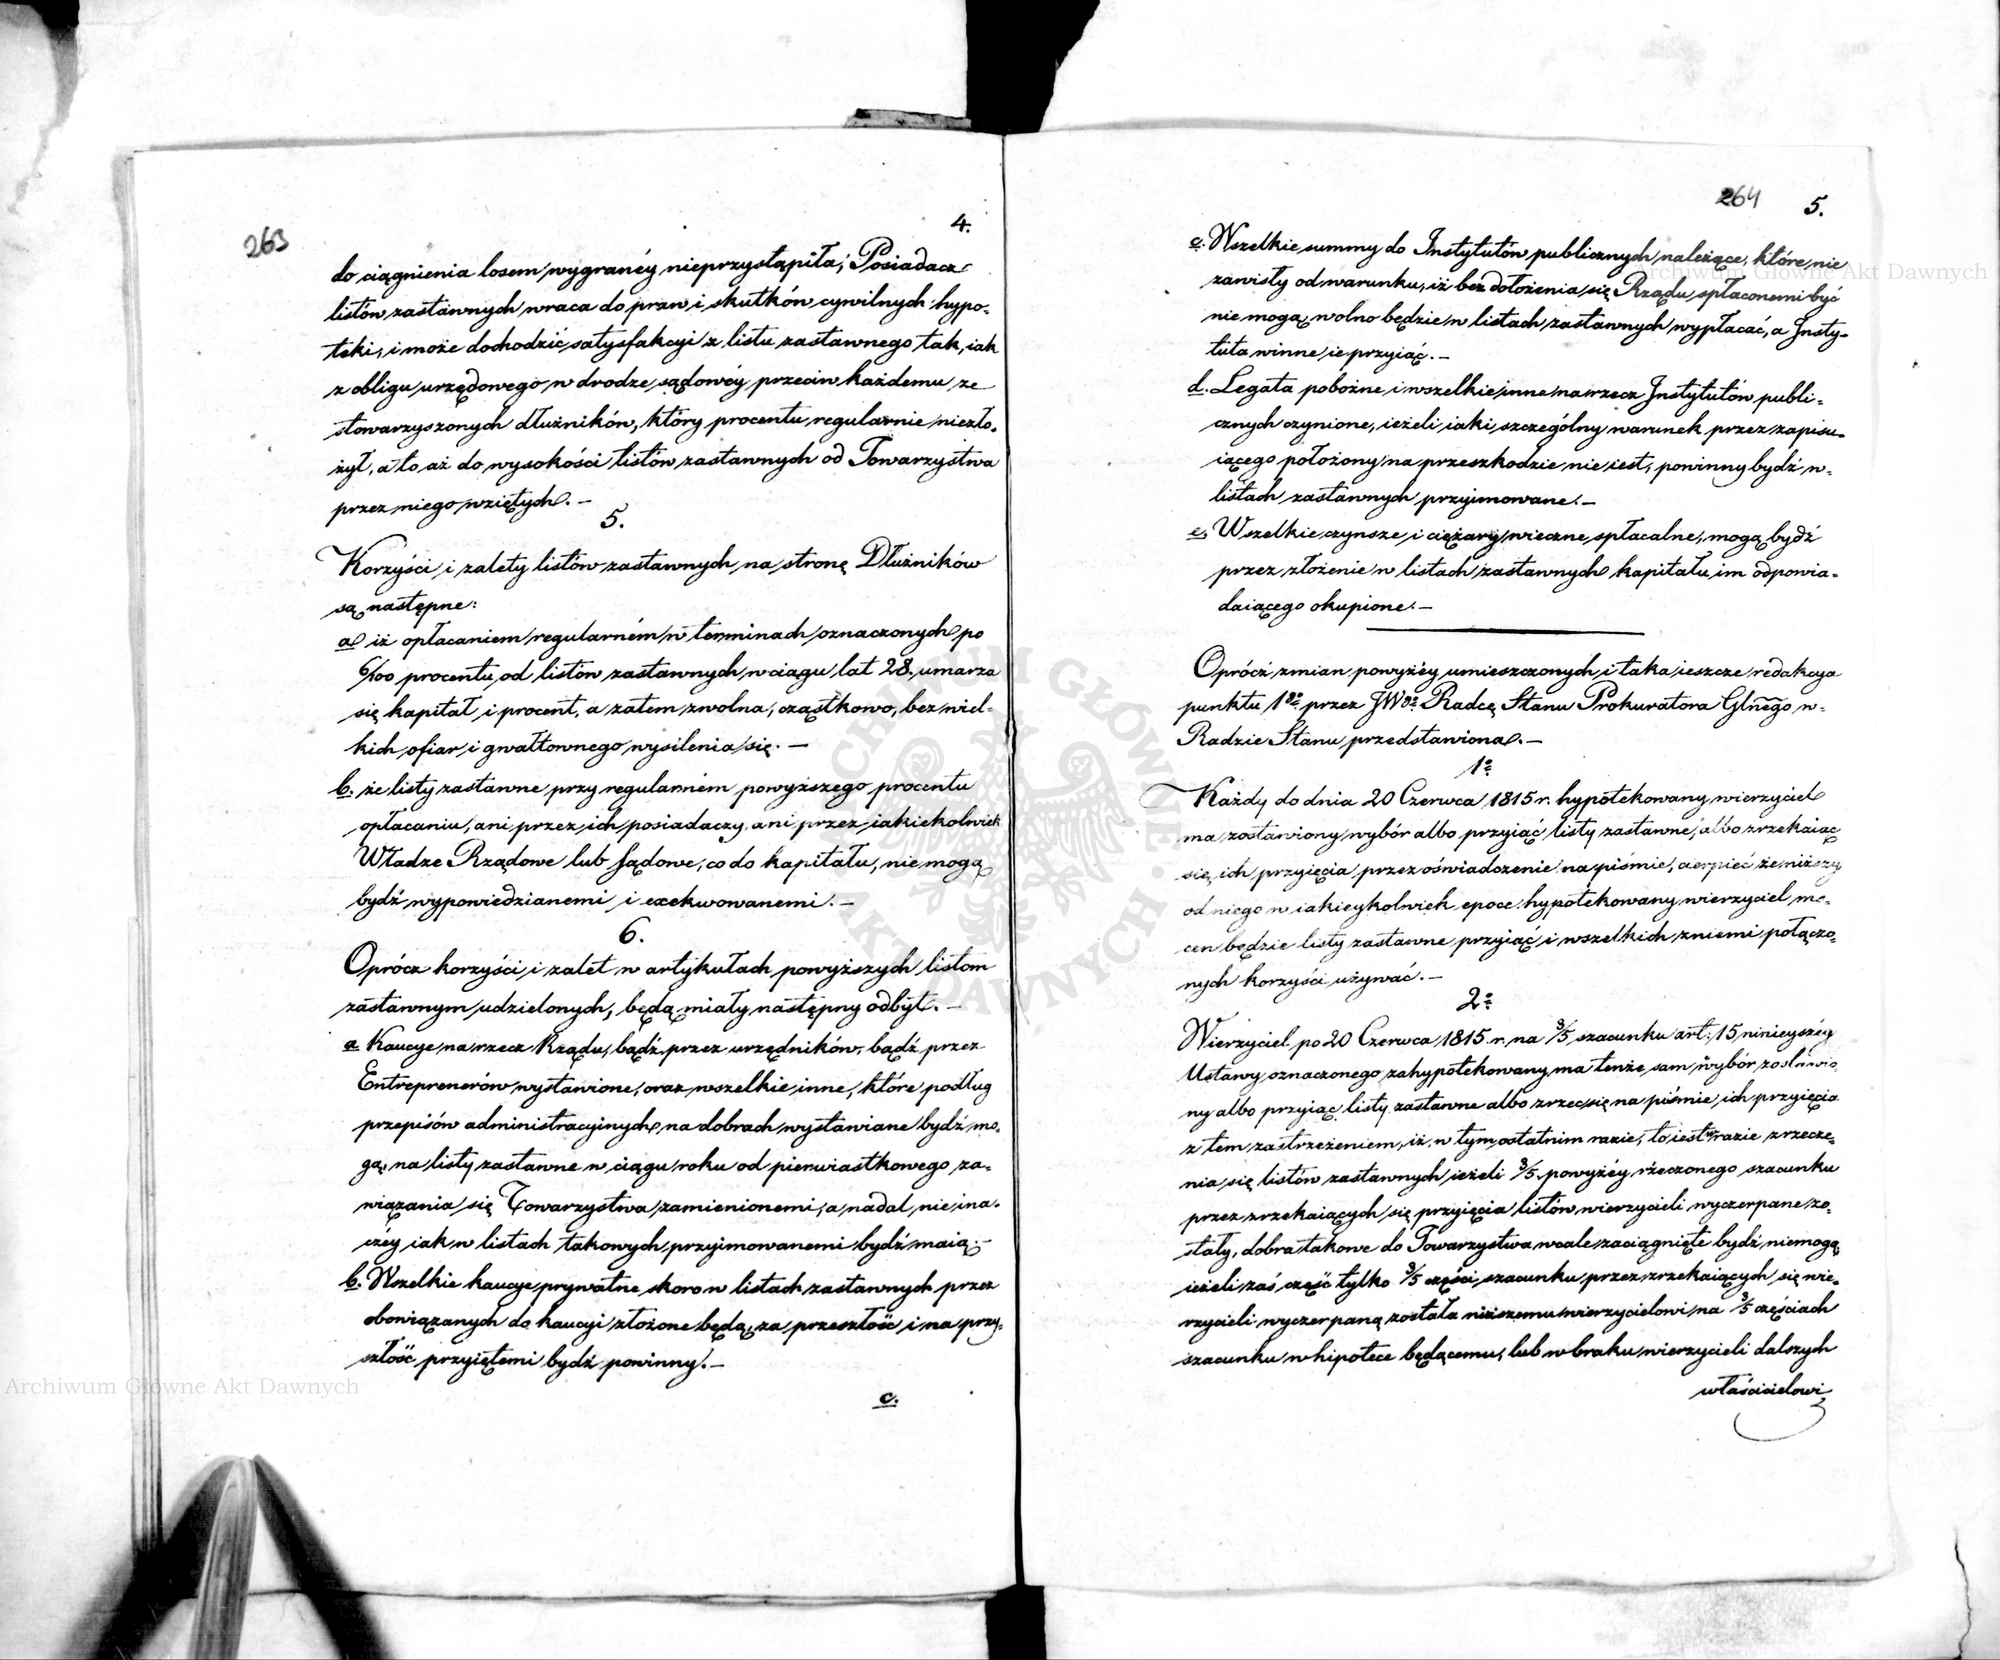 263
4.
do ciągnienia losem wygranéy nieprzystąpiła; Posiadacz
listów zastawnych wraca do praw i skutków cywilnych hypo-
teki, i może dochodzić satysfakcyi z listu zastawnego tak, iak
z obligu urzędowego w drodze sądowéy przeciw każdemu ze
stowarzyszonych dłużników, który procentu regularnie niezło-
żył, a to aż do wysokości listów zastawnych od Towarzystwa
przez niego wziętych. —
5.
Korzyści i zalety listów zastawnych na stronę Dłużników
są następne:
a iż opłacaniem regularném w terminach oznaczonych po
6/100 procentu od listów zastawnych w ciągu lat 28. umarza
się kapitał i procent, a zatem zwolna, cząstkowo, bez wiel-
kich ofiar i gwałtownego wysilenia się. —
b. że listy zastawne przy regularném powyższego procentu
opłacaniu, ani przez ich posiadaczy ani przez iakiekolwiek
Władze Rządowe lub Sądowe, co do kapitału, nie mogą
bydź wypowiedzianemi i exekwowanemi. —
6.
Oprócz korzyści i zalet w artykułach powyższych listom
zastawnym udzielonych, będą miały następny odbyt. —
a Kaucye na rzecz Rządu, bądź przez urzędników, bądź przez
Entreprenerów wystawione, oraz wszelkie inne, które podług
przepisów administracyinych na dobrach wystawiane bydź mo-
gą, na listy zastawne w ciągu roku od pierwiastkowego za-
wiązania się Towarzystwa zamienionemi, a nadal nie ina-
czéy iak w listach takowych przyimowanemi bydź maią. —
b. Wszelkie kaucye prywatne skoro w listach zastawnych przez
obowiązanych do kaucyi złożone będą, za przeszłość i na przy-
szłość przyiętemi bydź powinny. —
c.
264
5.
c. Wszelkie summy do Instytutów publicznych należące, które nie
zawisły od warunku, iż bez dołożenia się Rządu, spłaconemi być
nie mogą, wolno będzie w listach zastawnych wypłacać, a Insty-
tuta winne ie przyiąć. —
d. Legata pobożne i wszelkie inne na rzecz Instytutów publi-
cznych czynione, ieżeli iaki szczególny warunek przez zapisu-
iącego położony na przeszkodzie nie iest, powinny bydź w
listach zastawnych przyimowane. —
e. Wszelkie czynsze i ciężary wieczne spłacalne, mogą bydź
przez złożenie w listach zastawnych kapitału im odpowia-
daiącego okupione. —
Oprócz zmian powyżéy umieszczonych i taka ieszcze redakcya
punktu 1go przez JWgo Radcę Stanu Prokuratora Glnego w
Radzie Stanu przedstawiona. —
1o
Każdy do dnia 20 Czerwca 1815 r. hypotekowany wierzyciel
ma zostawiony wybór albo przyiąć listy zastawne, albo zrzekaiąc
się ich przyięcia przez oświadczenie na piśmie, cierpieć że niższy
od niego w iakieykolwiek epoce hypotekowany wierzyciel mo-
cen będzie listy zastawne przyiąć i wszelkich z niemi połączo-
nych korzyści używać. —
2o
Wierzyciel po 20 Czerwca 1815 r. na 3/5 szacunku art: 15 ninieyszéy
Ustawy oznaczonego zahypotekowany ma tenże sam wybór zostawio
ny albo przyiąć listy zastawne albo zrzec się na piśmie ich przyięcia
z tem zastrzeżeniem, iż w tym ostatnim razie, to iest w razie zrzecze-
nia się listów zastawnych ieżeli 3/5 powyżéy rzeczonego szacunku
przez zrzekaiących się przyięcia listów wierzycieli wyczerpane zo-
stały, dobra takowe do Towarzystwa wcale zaciągnięte bydź niemogą
ieżeli zaś część tylko 3/5 części szacunku przez zrzekaiących się wie-
rzycieli wyczerpaną została niższemu wierzycielowi na 3/5 częściach
szacunku w hipotece będącemu, lub w braku wierzycieli dalszych
właścicielowi
Archiwum Główne Akt Dawnych
Archiwum Główne Akt Dawnych
ARCHIWUM GŁÓWNE AKT DAWNYCH